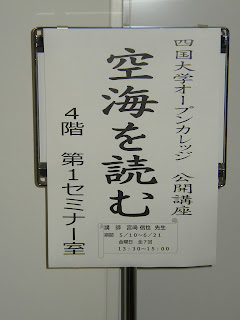 四国大学オープンカレッジ 公開講座
空海を読む
4階 第1セミナー室
講 師 宮崎 信也 先生
期間 5/10~6/21
金曜日 全7回
13:30~15:00